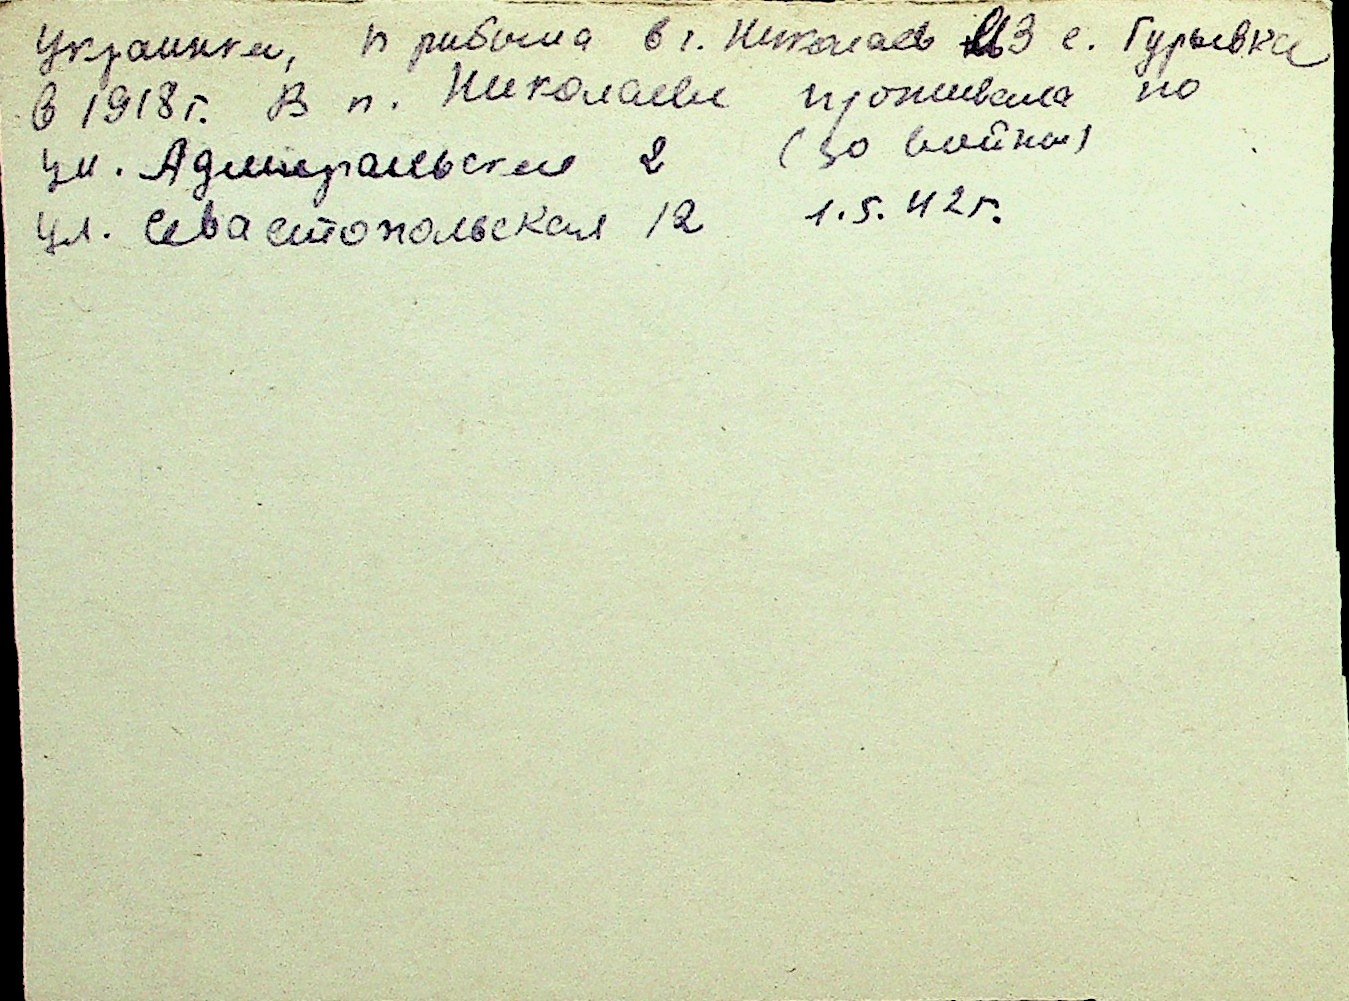 Украинка, прибыла в г. Николаев из с. Гурьевка
в 1918 г. В г. Николаеве проживала по
ул. Адмиральская 2 (до войны)
ул. Севастопольская 12 1.5.42 г.